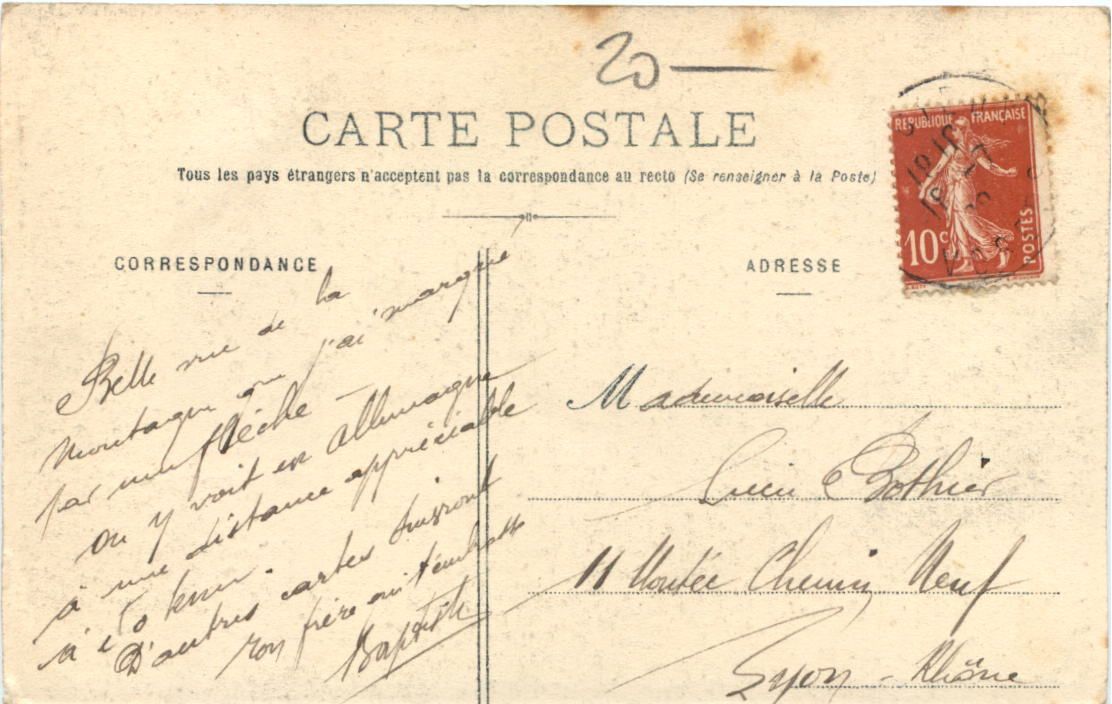 20 —
CARTE POSTALE
Tous les pays étrangers n'acceptent pas la correspondance au recto (Se renseigner à la Poste)
CORRESPONDANCE
Belle vue de la
montagne que j'ai marqué
par une flèche —
on y voit en Allemagne
à une distance appréciable
à 10 km.
D'autres cartes suivront
ton frère qui t'embrasse
Baptiste
ADRESSE
REPUBLIQUE FRANÇAISE
10c
POSTES
Mademoiselle
Bothier
11 Montée Chemin Neuf
Lyon - Rhône